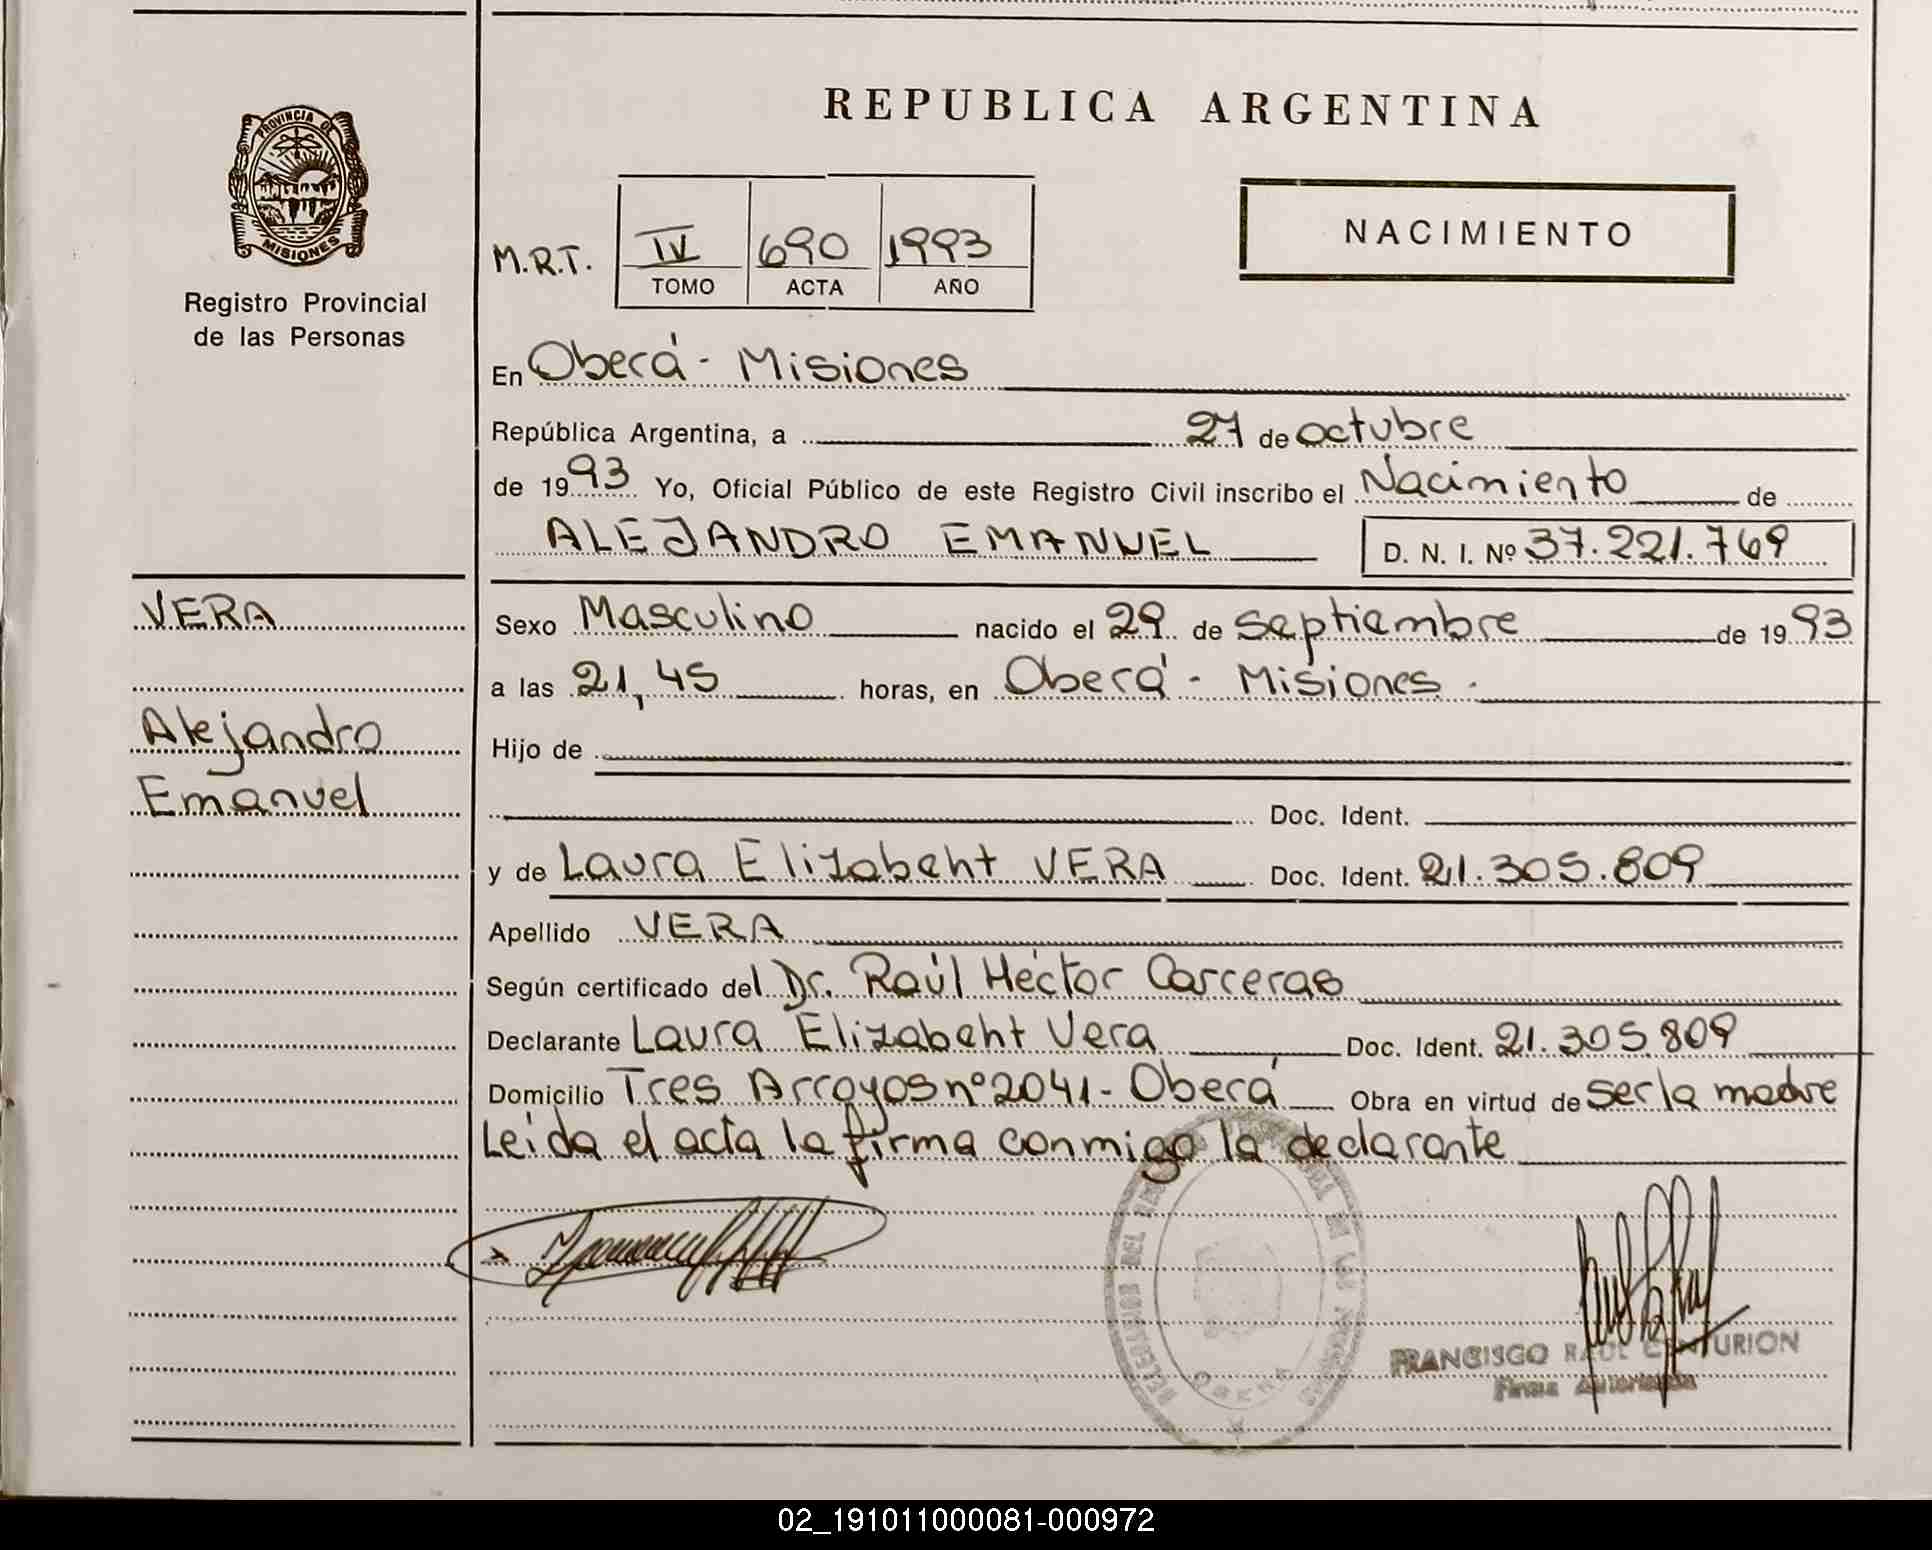 REPUBLICA ARGENTINA
PROVINCIA DE
MISIONES
Registro Provincial
de las Personas
M.R.T. IV 690 1993
TOMO ACTA AÑO
NACIMIENTO
En Oberá - Misiones
República Argentina, a 27 de octubre
de 1993 Yo, Oficial Público de este Registro Civil inscribo el Nacimiento de
ALEJANDRO EMANUEL D. N. I. Nº 37.221.769
VERA
Alejandro
Emanuel
Sexo Masculino nacido el 29 de septiembre de 1993
a las 21,45 horas, en Oberá - Misiones.
Hijo de
Doc. Ident.
y de Laura Elizabeht VERA Doc. Ident. 21.305.809
Apellido VERA
Según certificado del Dr. Raúl Héctor Carceras
Declarante Laura Elizabeht Vera Doc. Ident. 21.305.809
Domicilio Tres Arroyos nº 2041 - Oberá Obra en virtud de ser la madre
Leida el acta la firma conmigo la declarante
FRANCISCO RAUL CENTURION
Firma Autorizada
02_191011000081-000972